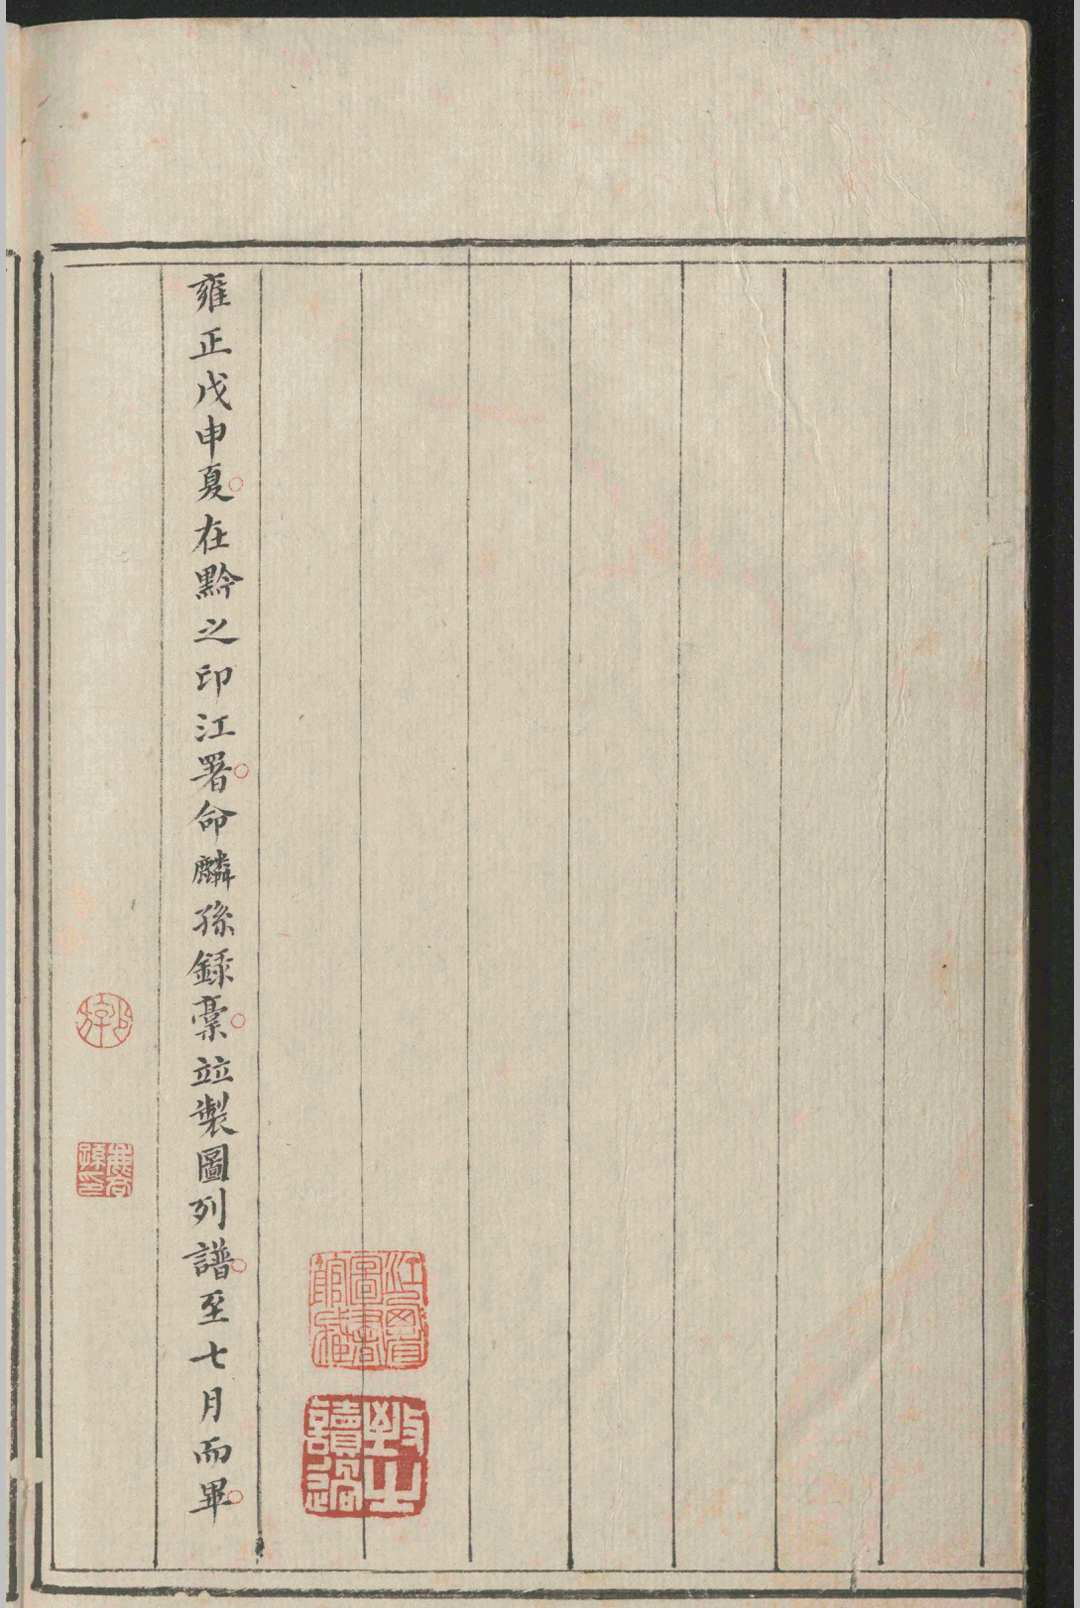 雍正戊申夏在黔之印江署命麟孫錄稾竝製圖列譜至七月而畢